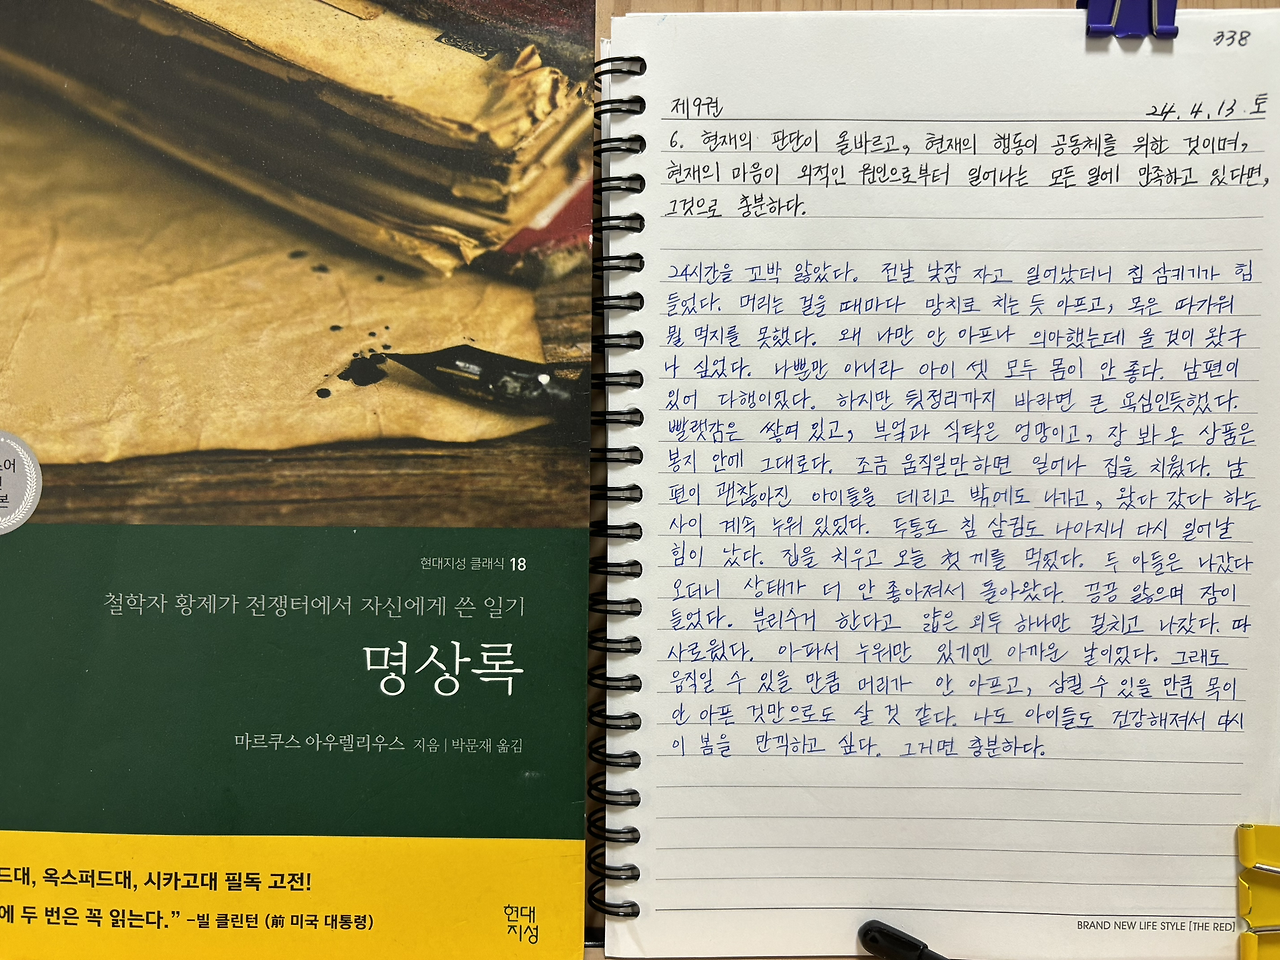 스어
전
본
현대지성 클래식 18
철학자 황제가 전쟁터에서 자신에게 쓴 일기
명상록
마르쿠스 아우렐리우스 지음 | 박문재 옮김
드대, 옥스퍼드대, 시카고대 필독 고전!
에 두 번은 꼭 읽는다.” –빌 클린턴 (前 미국 대통령)
현대
지성
338
제9권 24. 4. 13. 토
6. 현재의 판단이 올바르고, 현재의 행동이 공동체를 위한 것이며,
현재의 마음이 외적인 원인으로부터 일어나는 모든 일에 만족하고 있다면,
그것으로 충분하다.
24시간을 꼬박 앓았다. 전날 낮잠 자고 일어났더니 침 삼키기가 힘
들었다. 머리는 걸을 때마다 망치로 치는 듯 아프고, 목은 따가워
뭘 먹지를 못했다. 왜 나만 안 아프나 의아했는데 올 것이 왔구
나 싶었다. 나뿐만 아니라 아이 셋 모두 몸이 안 좋다. 남편이
있어 다행이었다. 하지만 뒷정리까지 바라면 큰 욕심인듯했다.
빨랫감은 쌓여 있고, 부엌과 식탁은 엉망이고, 장 봐 온 상품은
봉지 안에 그대로다. 조금 움직일만하면 일어나 집을 치웠다. 남
편이 괜찮아진 아이들을 데리고 밖에도 나가고, 왔다 갔다 하는
사이 계속 누워 있었다. 두통도 침 삼킴도 나아지니 다시 일어날
힘이 났다. 집을 치우고 오늘 첫 끼를 먹었다. 두 아들은 나갔다
오더니 상태가 더 안 좋아져서 돌아왔다. 끙끙 앓으며 잠이
들었다. 분리수거 한다고 얇은 외투 하나만 걸치고 나갔다. 따
사로웠다. 아파서 누워만 있기엔 아까운 날이었다. 그래도
움직일 수 있을 만큼 머리가 안 아프고, 삼킬 수 있을 만큼 목이
안 아픈 것만으로도 살 것 같다. 나도 아이들도 건강해져서 다시
이 봄을 만끽하고 싶다. 그거면 충분하다.
BRAND NEW LIFE STYLE [THE RED]